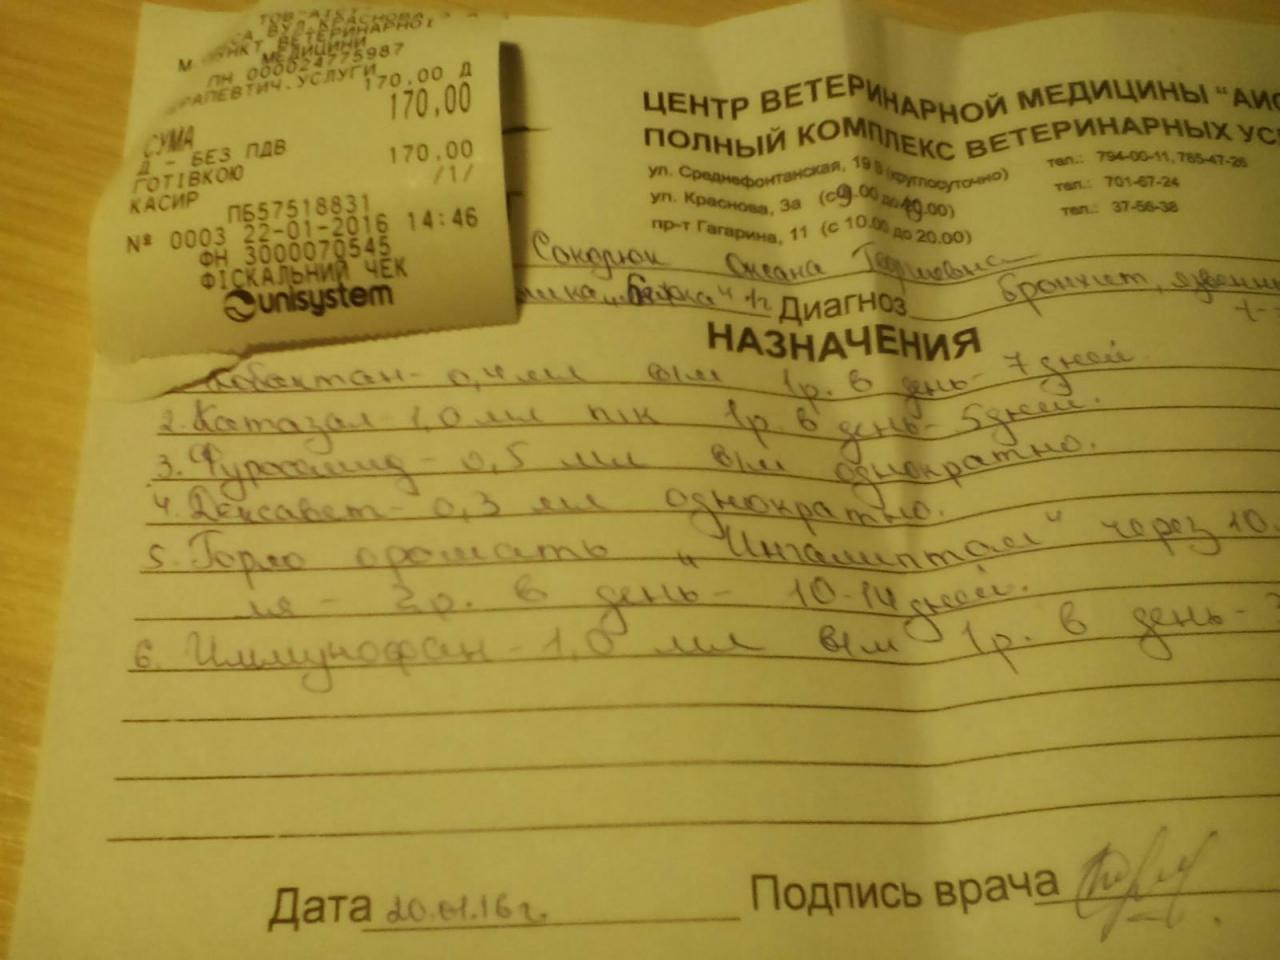 ТОВ "АІСТ"
ВУЛ.КРАСНОВА, 3 А
ПУНКТ ВЕТЕРИНАРНОЇ
МЕДИЦИНИ
ПН 000024775987
ТЕРАПЕВТИЧ.УСЛУГИ
170,00 Д
СУМА 170,00
Д - БЕЗ ПДВ
ГОТІВКОЮ 170,00
КАСИР /1/
ПБ57518831
№ 0003 22-01-2016 14:46
ФН 3000070545
ФІСКАЛЬНИЙ ЧЕК
unisystem
ЦЕНТР ВЕТЕРИНАРНОЙ МЕДИЦИНЫ "АИС
ПОЛНЫЙ КОМПЛЕКС ВЕТЕРИНАРНЫХ УС
ул. Среднефонтанская, 19 В (круглосуточно) тел.: 794-00-11, 785-47-26
ул. Краснова, 3а (с 9.00 до 19.00) тел.: 701-67-24
пр-т Гагарина, 11 (с 10.00 до 20.00) тел.: 37-56-38
Оксана Георгиевна
Диагноз бронхит, язвенн
НАЗНАЧЕНИЯ
Кобактан - 0,4 мл в/м 1р. в день - 7 дней
2. Катазал - 1,0 мл п/к 1р. в день - 5 дней.
3. Фуросемид - 0,5 мл в/м однократно.
4. Дексавет - 0,3 мл однократно.
5. Горло орошать "Ингалиптом" через 10.
ля - 2р. в день - 10-14 дней.
6. Иммунофан - 1,0 мл в/м 1р. в день -
Дата 20.01.16г. Подпись врача